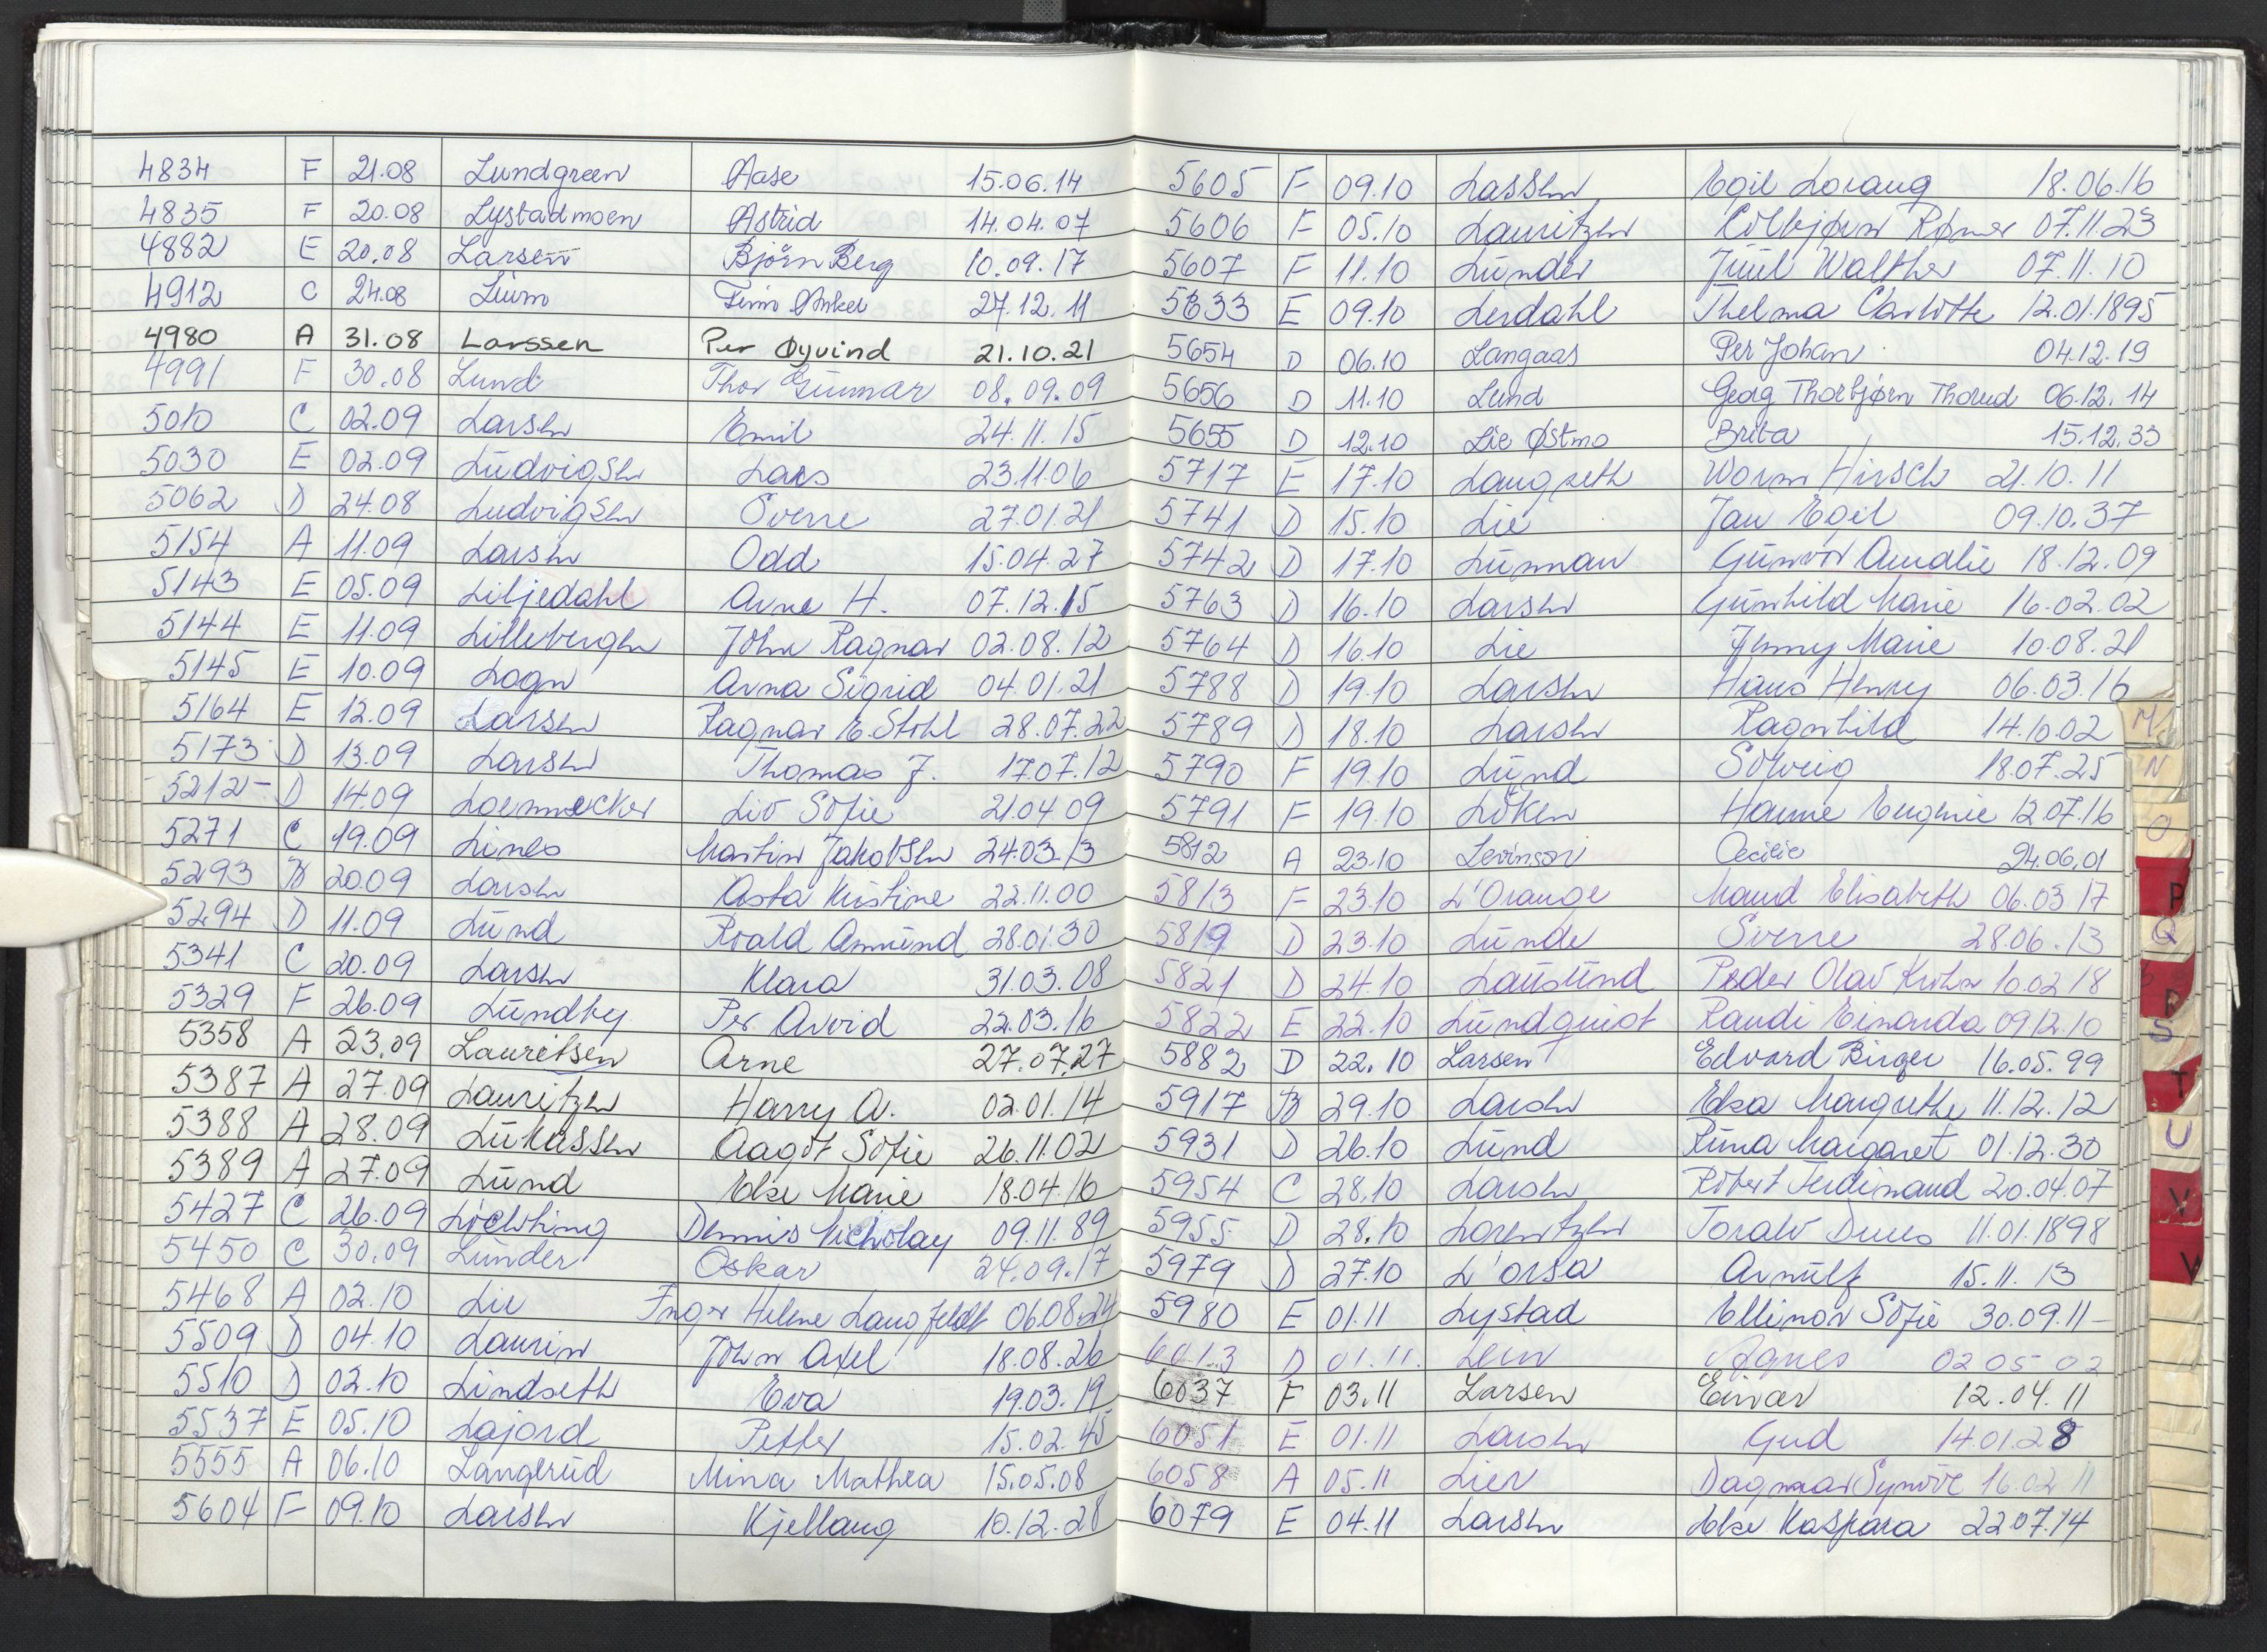 4834 F 21.08 Lundgreen Aase 15.06.14
4835 F 20.08 Lystadmoen Astrid 14.04.07
4882 E 20.08 Larsen Bjørn Berg 10.09.17
4912 C 24.08 Finn 27.12.11
4980 A 31.08 Larssen Per Øyvind 21.10.21
4991 F 30.08 Lund Thor Gunnar 08.09.09
5010 C 02.09 Larsen Emil 24.11.15
5030 E 02.09 Ludvigsen Lars 23.11.06
5062 D 24.08 Ludvigsen Sverre 27.01.21
5154 A 11.09 Larsen Odd 15.04.27
5143 E 05.09 Liljedahl Arne H. 07.12.15
5144 E 11.09 Lillebergen John Ragnar 02.08.12
5145 E 10.09 Logn Anna Sigrid 04.01.21
5164 E 12.09 Larsen Ragnar E. Stohl 28.07.22
5173 D 13.09 Larsen Thomas J. 17.07.12
5212 D 14.09 Loennecker Liv Sofie 21.04.09
5271 C 19.09 Lines Martin Jakobsen 24.03.13
5293 B 20.09 Larsen Asta Kristine 22.11.00
5294 D 11.09 Lund Roald Amund 28.01.30
5341 C 20.09 Larsen Klara 31.03.08
5329 F 26.09 Lundby Per Arvid 22.03.16
5358 A 23.09 Lauritsen Arne 27.07.27
5387 A 27.09 Lauritzen Harry A. 02.01.14
5388 A 28.09 Lukassen Aagot Sofie 26.11.02
5389 A 27.09 Lund Else Marie 18.04.16
5427 C 26.09 Löchting Dennis Nicholay 09.11.89
5450 C 30.09 Lunder Oskar 24.09.17
5468 A 02.10 Lie Inger Helene Langfeldt 06.08.24
5509 D 04.10 Laurin John Axel 18.08.26
5510 D 02.10 Lindseth Eva 19.03.19
5537 E 05.10 Lajord Petter 15.02.45
5555 A 06.10 Langerud Mina Mathea 15.05.08
5604 F 09.10 Larsen Kjellaug 10.12.28
5605 F 09.10 Lassen Egil Lorang 18.06.16
5606 F 05.10 Lauritzen Colbjørn Rømer 07.11.23
5607 F 11.10 Lunder Juul Walther 07.11.10
5633 E 09.10 Lerdahl Thelma Charlotte 12.01.1895
5654 D 06.10 Langaas Per Johan 04.12.19
5656 D 11.10 Lund Georg Thorbjørn Thorud 06.12.14
5655 D 12.10 Lie Østmo Brita 15.12.33
5717 E 17.10 Langseth Worm Hirsch 21.10.11
5741 D 15.10 Lie Jan Egil 09.10.37
5742 D 17.10 Lunnan Gunvor Amalie 18.12.09
5763 D 16.10 Larsen Gunhild Marie 16.02.02
5764 D 16.10 Lie Jenny Marie 10.08.21
5788 D 19.10 Larsen Hans Henry 06.03.16
5789 D 18.10 Larsen Ragnhild 14.10.02
5790 F 19.10 Lund Solveig 18.07.25
5791 F 19.10 Løken Hanne Eugenie 12.07.16
5812 A 23.10 Levinson Cecilie 24.06.01
5813 F 23.10 L'Orange Maud Elisabeth 06.03.17
5819 D 23.10 Lunde Sverre 28.06.13
5821 D 24.10 Lausund Peder Olav Krohn 10.02.18
5822 E 22.10 Lundquist Randi Einarda 09.12.10
5882 D 22.10 Larsen Edvard Birger 16.05.99
5917 B 29.10 Larsen Elsa Margrethe 11.12.12
5931 D 26.10 Lund Runa Margaret 01.12.30
5954 C 28.10 Larsen Robert Ferdinand 20.04.07
5955 D 28.10 Lorentzen Toralv 11.01.1898
5979 D 27.10 L'orsa Arnulf 15.11.13
5980 E 01.11 Lystad Ellinor Sofie 30.09.11
6013 D 01.11. Lein Agnes 02 05 02
6037 F 03.11 Larsen Einar 12.04.11
6051 E 01.11 Larsen Gud 14.01.28
6058 A 05.11 Lier Dagmar Synöve 16.02.11
6079 E 04.11 Larsen Else Kaspara 22.07.14
M
N
O
P
Q
R
S
T
U
V